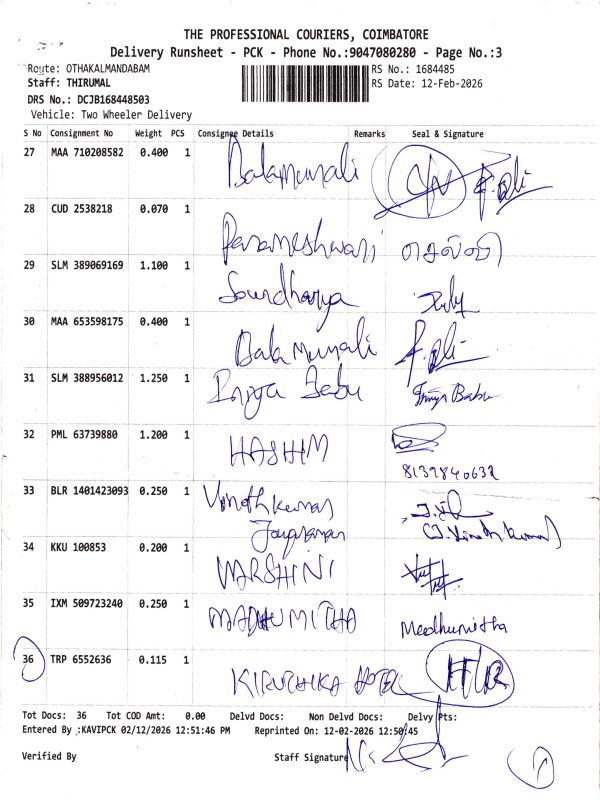 THE PROFESSIONAL COURIERS, COIMBATORE
Delivery Runsheet - PCK - Phone No.:9047080280 - Page No.:3
Route: OTHAKALMANDABAM
RS No.: 1684485
Staff: THIRUMAL
RS Date: 12-Feb-2026
DRS No.: DCJB168448503
Vehicle: Two Wheeler Delivery
S No Consignment No Weight PCS Consignee Details Remarks Seal & Signature
27 MAA 710208582 0.400 1 Balamurali
28 CUD 2538218 0.070 1 Parameshwari செல்வி
29 SLM 389069169 1.100 1 Soundharya
30 MAA 653598175 0.400 1 Bala Murali
31 SLM 388956012 1.250 1 Babu Babu
32 PML 63739880 1.200 1 HASHIM
8137840632
33 BLR 1401423093 0.250 1 Vinothkumar
Jayaraman (J. Vinoth kumar)
34 KKU 100853 0.200 1 VARSHINI
35 IXM 509723240 0.250 1 MADHUMITHA Madhumitha
36 TRP 6552636 0.115 1 KIRUTHIKA HOTEL
Tot Docs: 36 Tot COD Amt: 0.00 Delvd Docs: Non Delvd Docs: Delvy Pts:
Entered By :KAVIPCK 02/12/2026 12:51:46 PM Reprinted On: 12-02-2026 12:50:45
Verified By Staff Signature